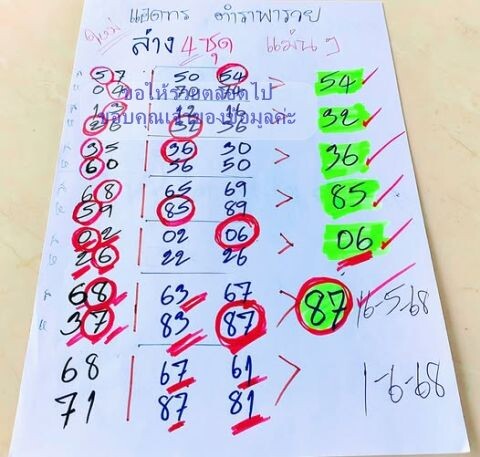 แฮดการ ตำราพารวย
ล่าง 4 ชุด แม่นๆ
57 50 54 > 54
04
ขอให้รวยตลอดไป
ขอบคุณเจ้าของข้อมูลค่ะ
32 36 > 32
35 36 30 > 36
60 56 50
68 65 69 > 85
59 85 89
02 02 06 > 06
26 22 26
68 63 67 > 87 16-5-68
37 83 87
68 67 61 > 1-6-68
71 87 81